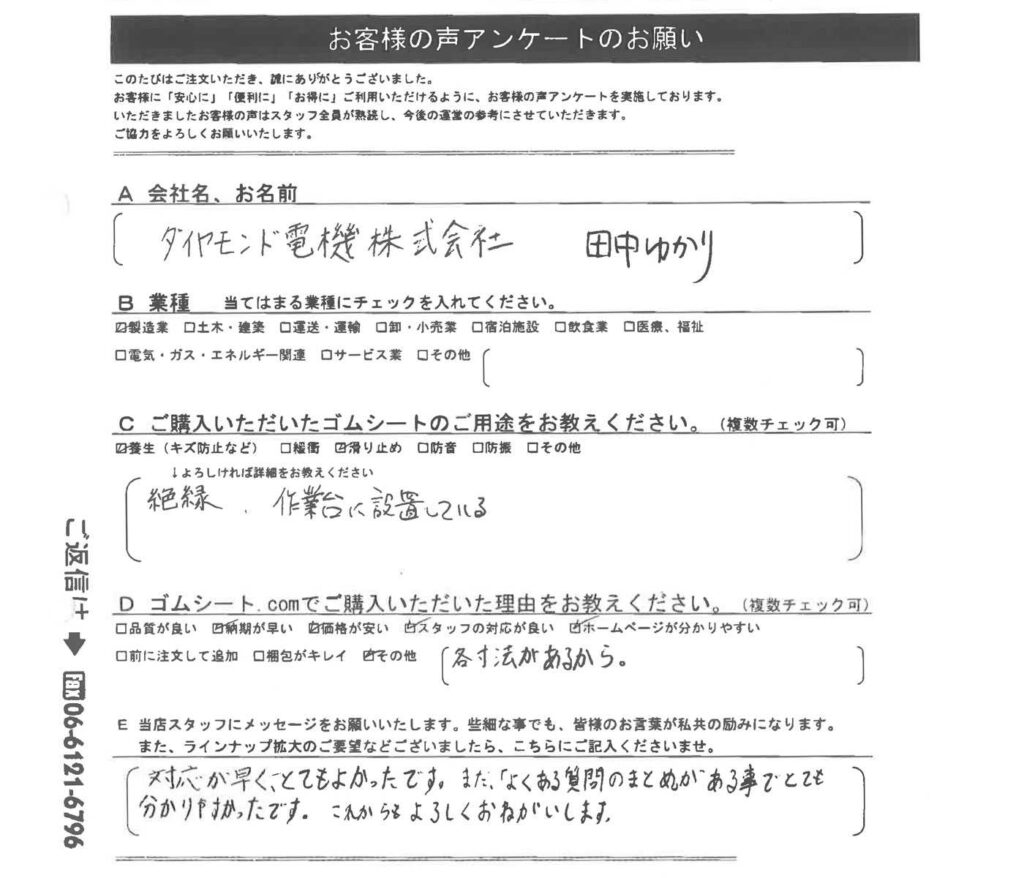 お客様の声アンケートのお願い
このたびはご注文いただき、誠にありがとうございました。
お客様に「安心に」「便利に」「お得に」ご利用いただけるように、お客様の声アンケートを実施しております。
いただきましたお客様の声はスタッフ全員が熟読し、今後の運営の参考にさせていただきます。
ご協力をよろしくお願いいたします。
A 会社名、お名前
ダイヤモンド電機株式会社 田中ゆかり
B 業種 当てはまる業種にチェックを入れてください。
☑製造業 □土木・建築 □運送・運輸 □卸・小売業 □宿泊施設 □飲食業 □医療、福祉
□電気・ガス・エネルギー関連 □サービス業 □その他
C ご購入いただいたゴムシートのご用途をお教えください。(複数チェック可)
☑養生(キズ防止など) □緩衝 ☑滑り止め □防音 □防振 □その他
↓よろしければ詳細をお教えください
絶縁、作業台に設置している
D ゴムシート.comでご購入いただいた理由をお教えください。(複数チェック可)
□品質が良い ☑納期が早い ☑価格が安い ☑スタッフの対応が良い ☑ホームページが分かりやすい
□前に注文して追加 □梱包がキレイ ☑その他 各寸法があるから。
E 当店スタッフにメッセージをお願いいたします。些細な事でも、皆様のお言葉が私共の励みになります。
また、ラインナップ拡大のご要望などございましたら、こちらにご記入くださいませ。
対応が早く、とてもよかったです。また、「よくある質問のまとめがある事でとても
分かりやすかったです。これからもよろしくおねがいします。
ご返信は➡FAX06-6121-6796